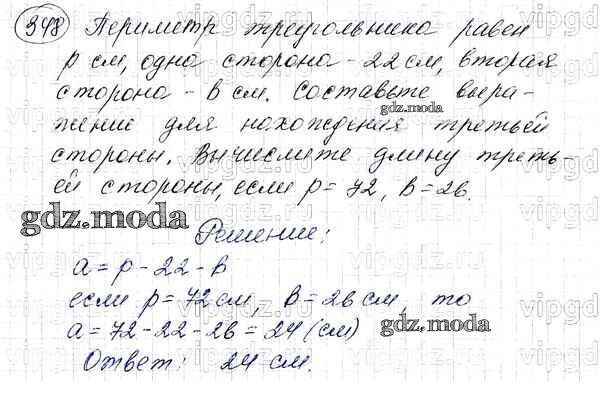 348 Периметр треугольника равен
p см, одна сторона - 22 см, вторая
сторона - b см. Составьте выра-
жение для нахождения третьей
стороны. Вычислите длину треть-
ей стороны, если p = 72, b = 26.
gdz.moda
gdz.moda
Решение:
a = p - 22 - b
если p = 72 см, b = 26 см, то
a = 72 - 22 - 26 = 24 (см)
gdz.moda
Ответ: 24 см.